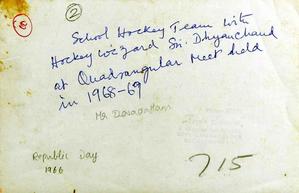 ②
School Hockey Team with
Hockey Wizard Sri. Dhyanchand
at Quadrangular Meet held
in 1968-69
Mr
Republic Day
1966
715